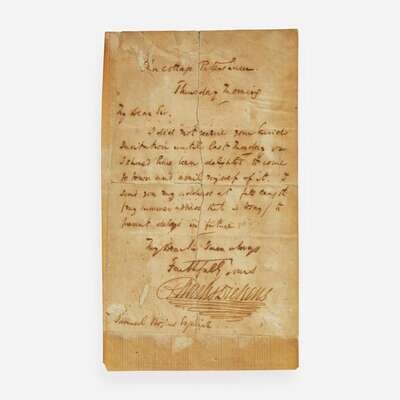 Elm Cottage Petersham.
Thursday Morning
My Dear Sir.
I did not receive your kind
invitation until last Tuesday or
I should have been delighted to come
to town and avail myself of it. I
send you my address at full length
(my summer address that is to say) to
prevent delays in future.
My Dear Sir I am always
Faithfully yours
Charles Dickens
Samuel Rogers Esquire